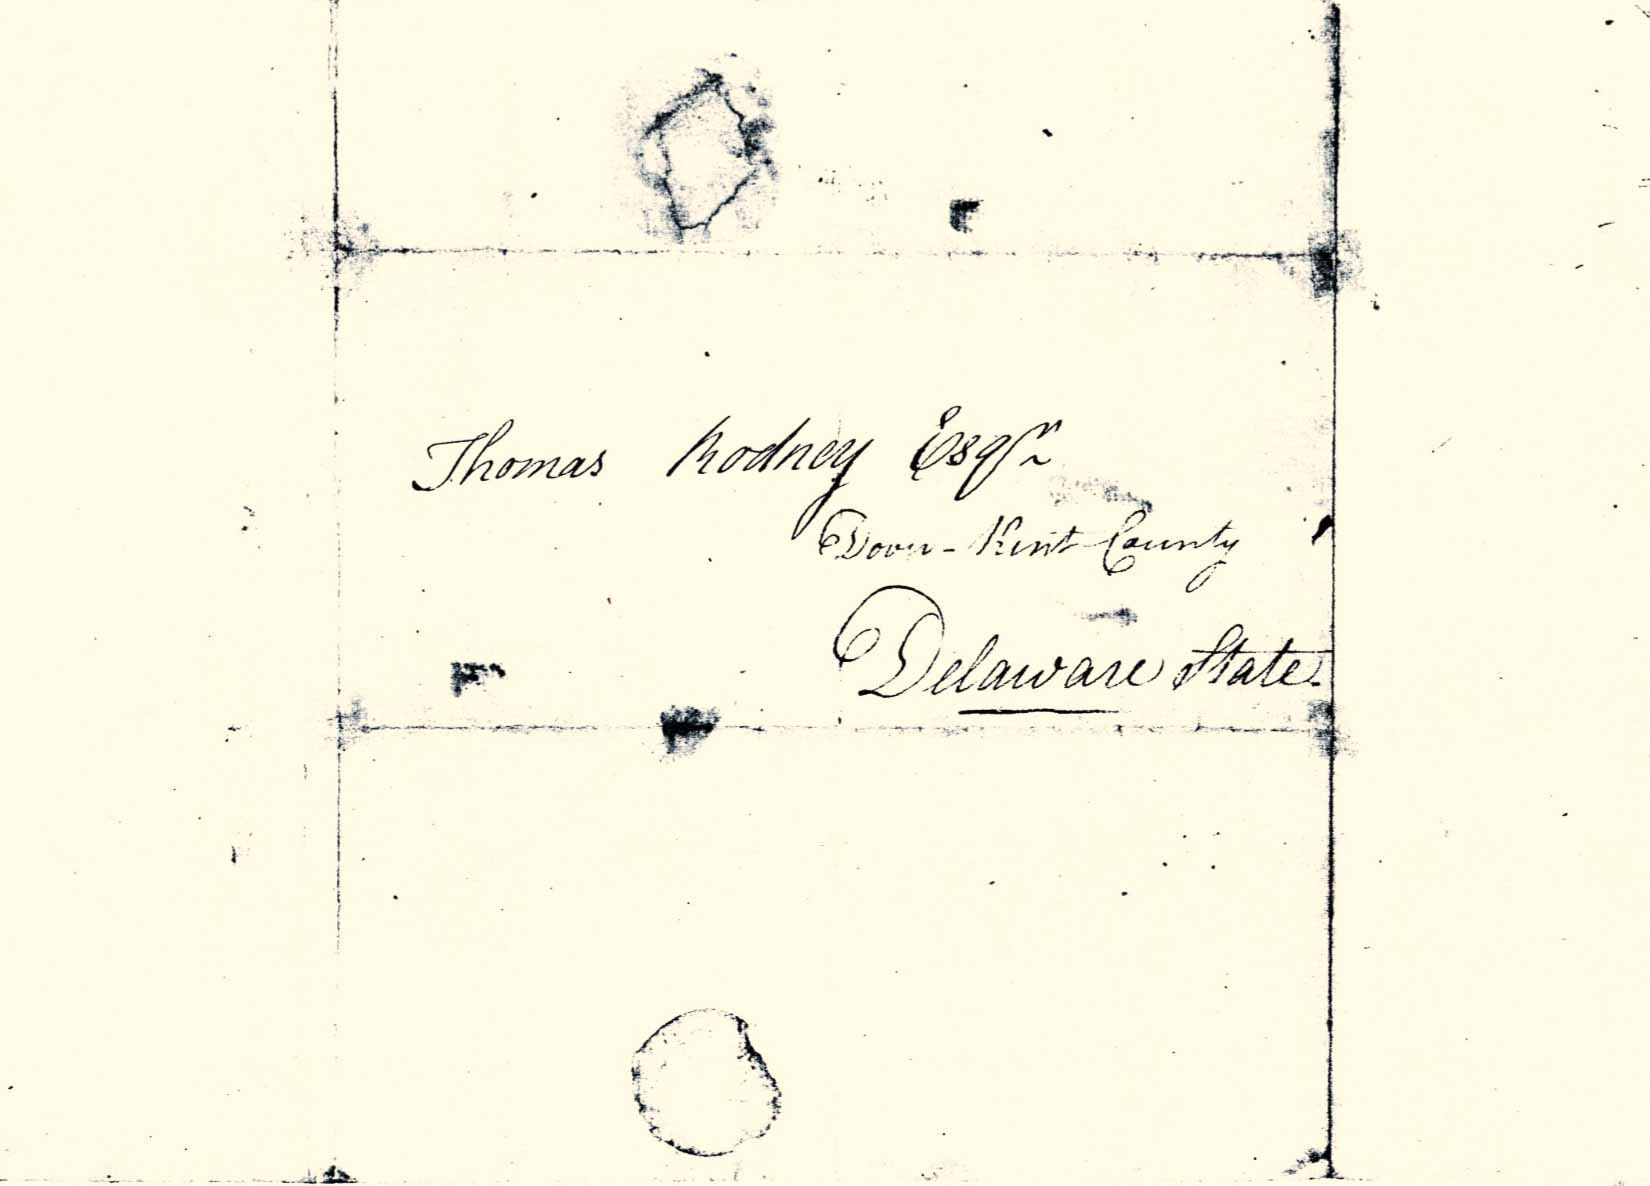 Thomas Rodney Esqr
Dover - Kent County
Delaware State.